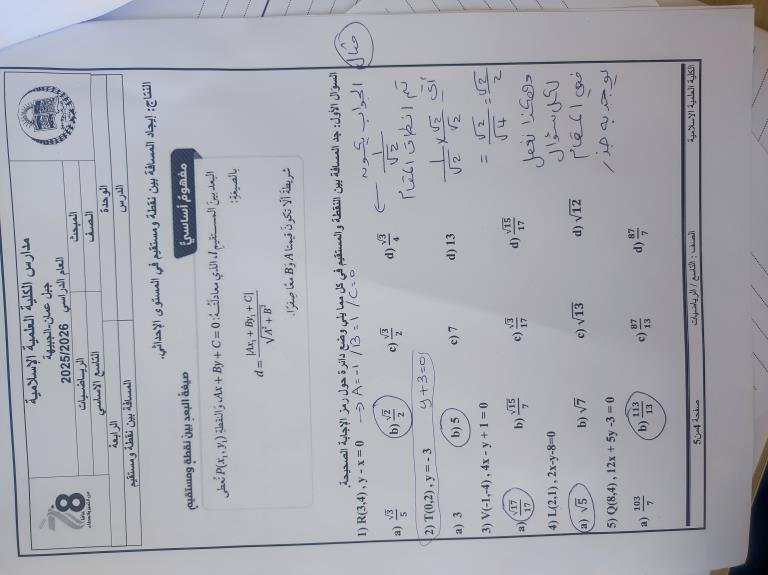 مدارس الكلية العلمية الإسلامية
جبل عمان-الجبيهة
2025/2026 العام الدراسي
المبحث
الرياضيات
الصف
التاسع الأساسي
الوحدة
الرابعة
الدرس
المسافة بين نقطة ومستقيم
النتاج: إيجاد المسافة بين نقطة ومستقيم في المستوى الإحداثي.
مفهوم أساسي
صيغة البعد بين نقطة ومستقيم
البعد بين المستقيم l الذي معادلته: Ax + By + C = 0 والنقطة P(x₁, y₁) تُعطى
بالصيغة:
d = |Ax₁ + By₁ + C| / √(A² + B²)
شريطة ألا تكون قيمتا A و B معًا صفرًا.
السؤال الأول: جد المسافة بين النقطة والمستقيم في كل مما يلي وضع دائرة حول رمز الإجابة الصحيحة.
مثال
1) R(3,4) , y - x = 0 → A=-1 / B=1 / C=0
a) √3/5 b) √2/2 c) √3/2 d) √3/4
2) T(0,2) , y = - 3 y+3=0
a) 3 b) 5 c) 7 d) 13
3) V(-1,-4) , 4x - y + 1 = 0
a) √17/17 b) √15/7 c) √3/17 d) √15/17
4) L(2,1) , 2x-y-8=0
a) √5 b) √7 c) √13 d) √12
5) Q(8,4) , 12x + 5y -3 = 0
a) 103/7 b) 113/13 c) 87/13 d) 87/7
الجواب يكون
← 1/√2
تم انطاق المقام
1/√2 × √2/√2
= √2/√4 = √2/2
وهكذا نفعل
لكل سؤال
يوجد به جذر
في المقام
صفحة 4من5
الصف : التاسع / الرياضيات
الكلية العلمية الإسلامية